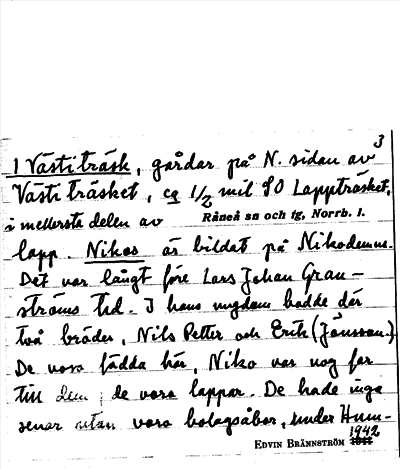 3
I Västiträsk, gårdar på N. sidan av
Västi träsket, ca 1/2 mil SO Lappträsket,
i mellersta delen av Råneå sn och tg, Norrb. l.
lapp. Nikos är bildat på Nikodemus.
Det var långt före Lars Johan Gran-
ströms tid. I hans ungdom bodde där
två bröder, Nils Petter och Erik (Jönsson.)
De vora födda här, Niko var nog far
till dem; de vora lappar. De hade inga
renar utan vora bolagsåbor, under Hum-
EDVIN BRÄNNSTRÖM 1942